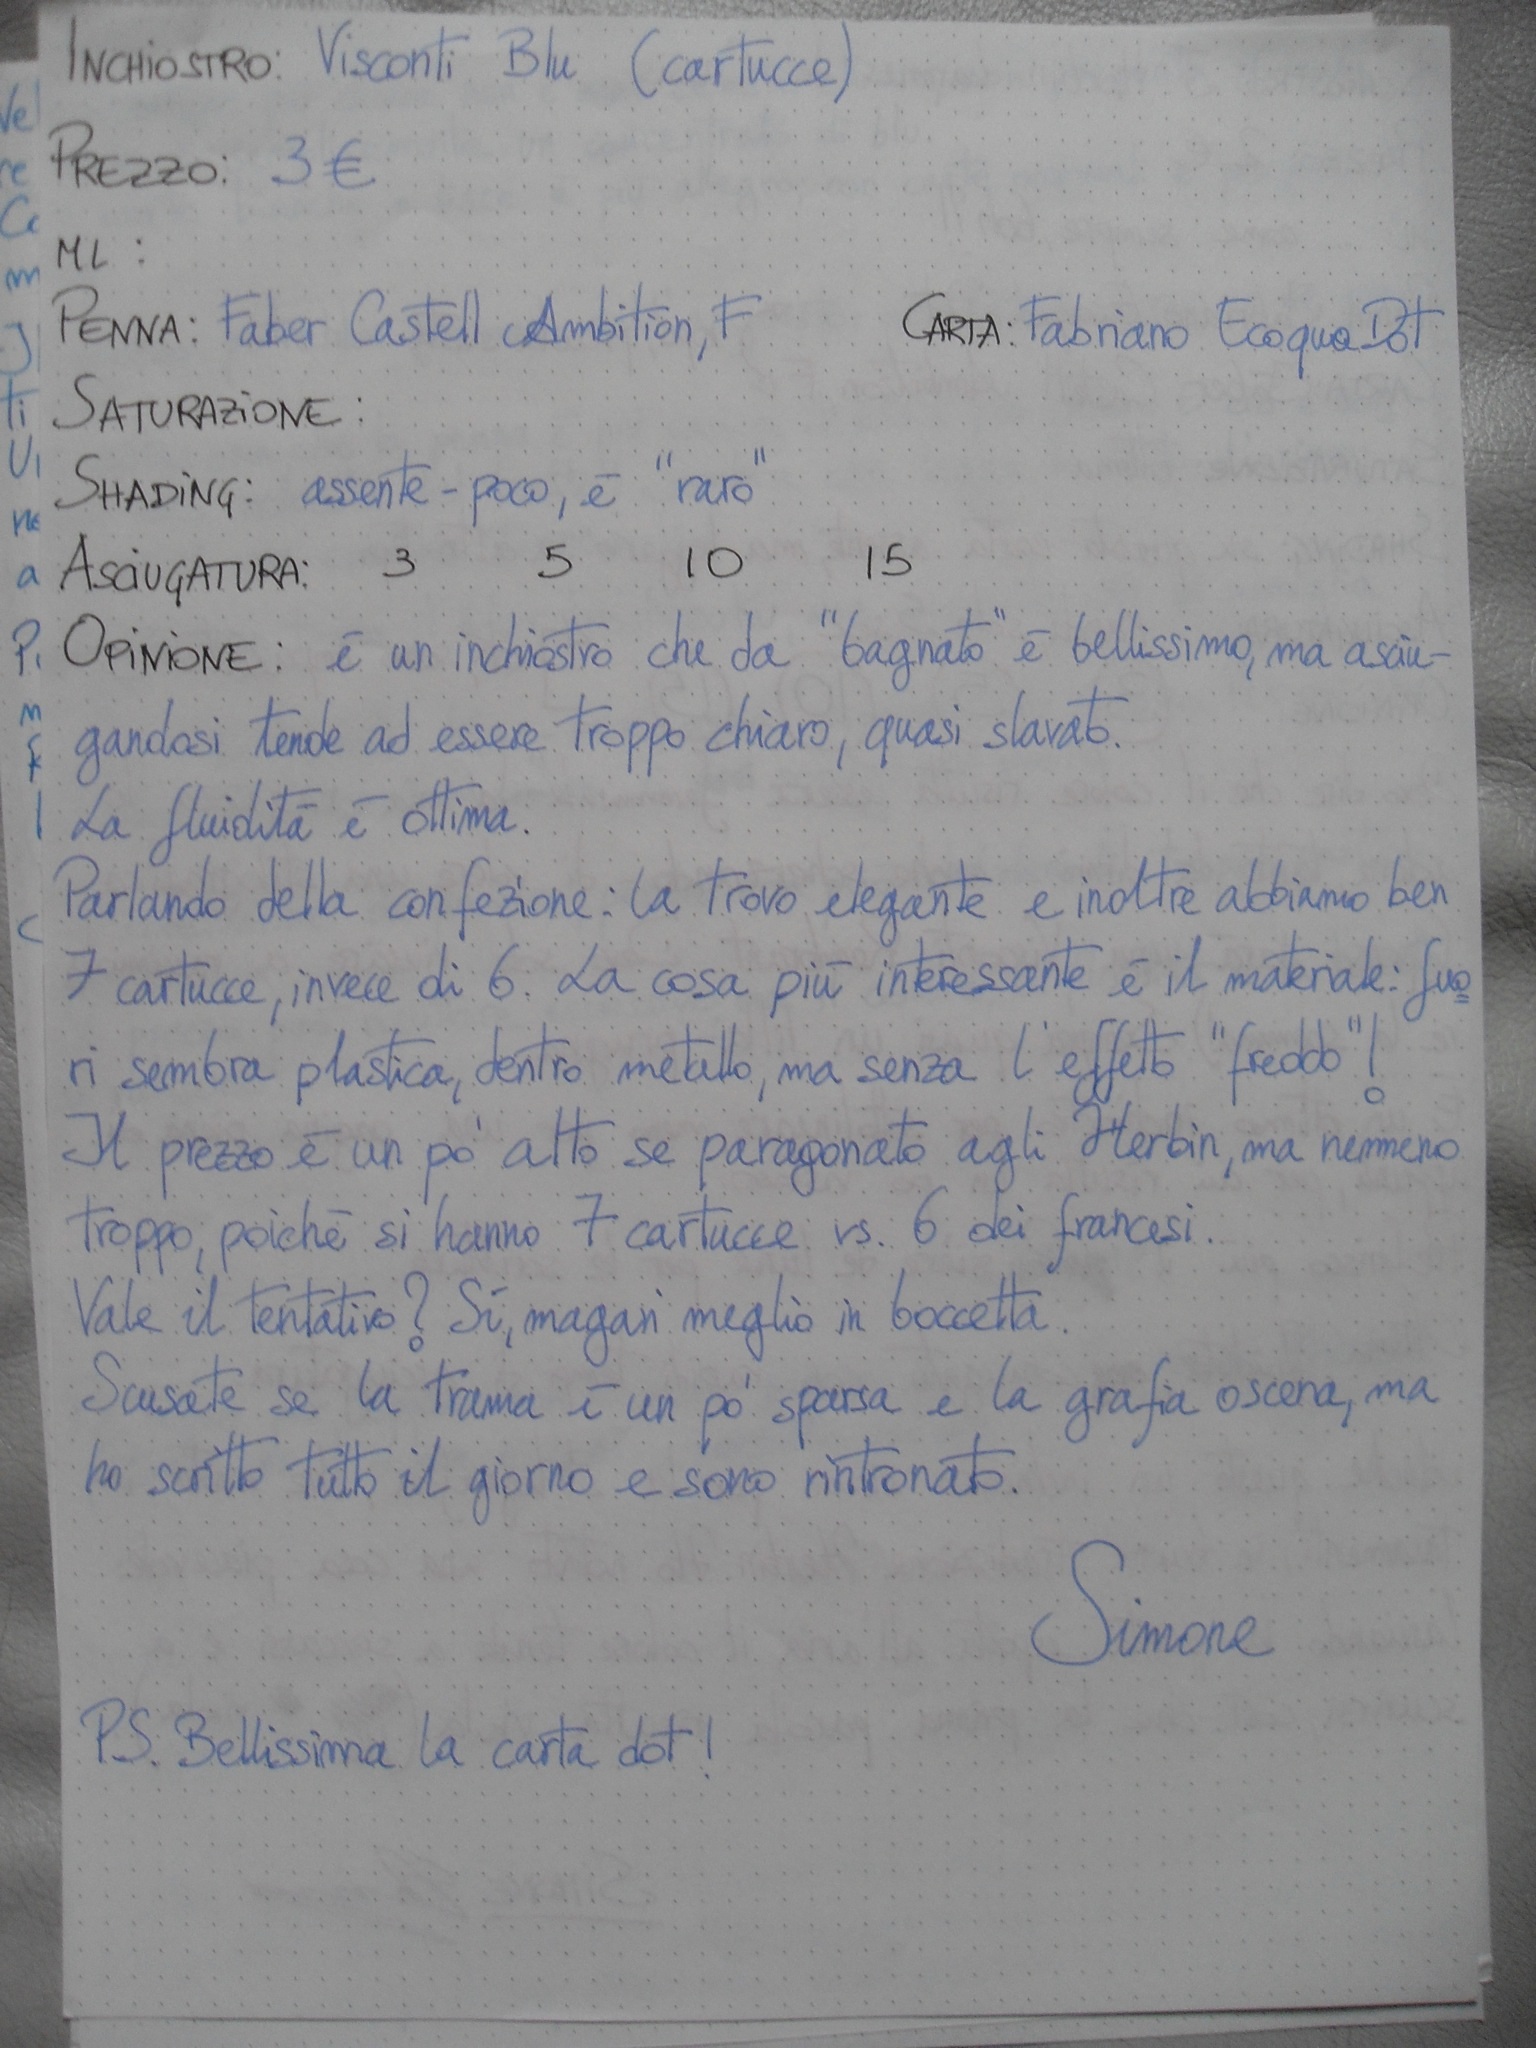 INCHIOSTRO: Visconti Blu (cartucce)
PREZZO: 3 €
ML :
PENNA: Faber Castell Ambition, F CARTA: Fabriano EcoquaDot
SATURAZIONE:
SHADING: assente - poco, è "raro"
ASCIUGATURA: 3 5 10 15
OPINIONE: è un inchiostro che da "bagnato" è bellissimo, ma asciu-
gandosi tende ad essere troppo chiaro, quasi slavato.
La fluidità è ottima.
Parlando della confezione: la trovo elegante e inoltre abbiamo ben
7 cartucce, invece di 6. La cosa più interessante è il materiale: fuo
ri sembra plastica, dentro metallo, ma senza l'effetto "freddo"!
Il prezzo è un po' alto se paragonato agli Herbin, ma nemmeno
troppo, poiché si hanno 7 cartucce vs. 6 dei francesi.
Vale il tentativo? Sì, magari meglio in boccetta.
Scusate se la trama è un po' sparsa e la grafia oscena, ma
ho scritto tutto il giorno e sono rintronato.
Simone
P.S. Bellissima la carta dot!